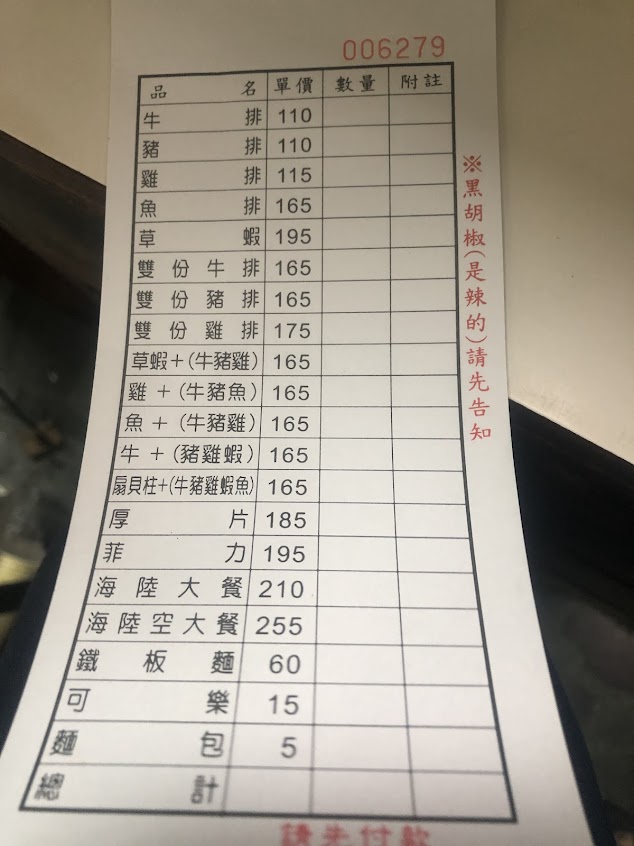 006279
品名 單價 數量 附註
牛排 110
豬排 110
雞排 115
魚排 165
草蝦 195
雙份牛排 165
雙份豬排 165
雙份雞排 175
草蝦+(牛豬雞) 165
雞+(牛豬魚) 165
魚+(牛豬雞) 165
牛+(豬雞蝦) 165
扇貝柱+(牛豬雞蝦魚) 165
厚片 185
菲力 195
海陸大餐 210
海陸空大餐 255
鐵板麵 60
可樂 15
麵包 5
總計
※黑胡椒(是辣的)請先告知
請先付款